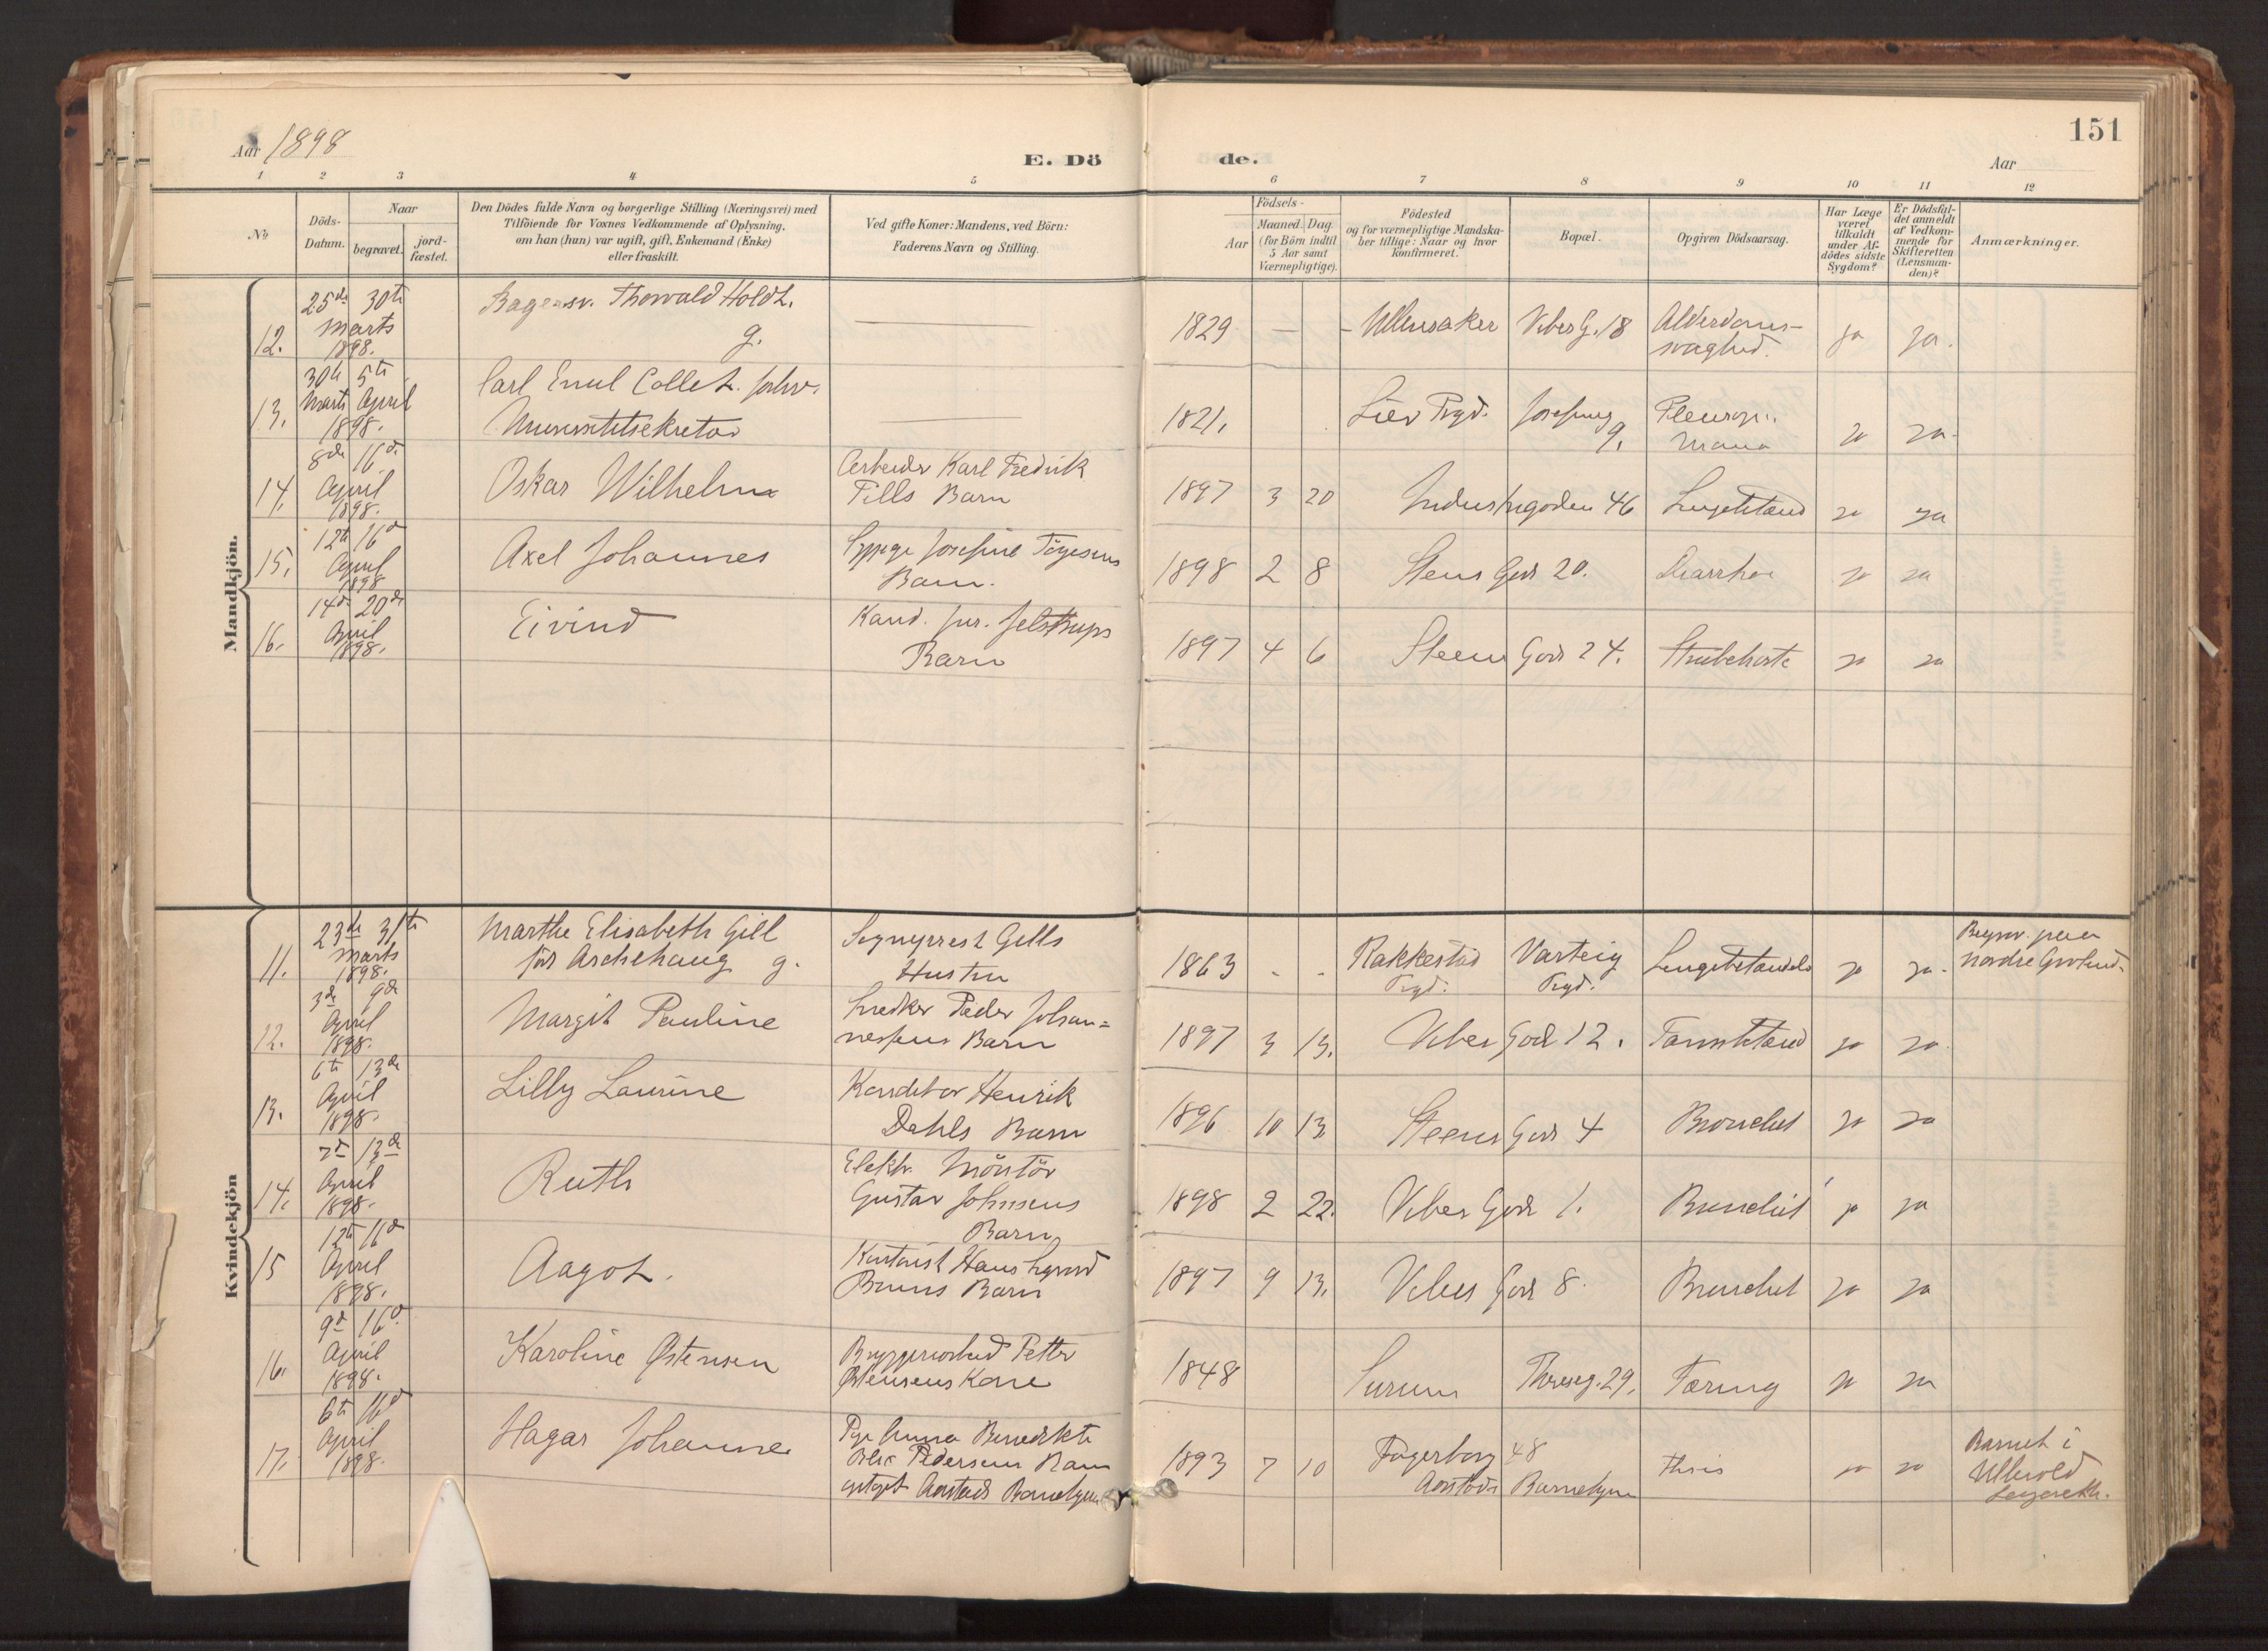 151
Aar 1898
E. Dö
de.
Aar
1 2 3 4 5 6 7 8 9 10 11 12
No
Döds-
Datum.
Naar
begravet.
jord-
fæstet.
Den Dödes fulde Navn og borgerlige Stilling (Næringsvei) med
Tilföiende for Voxnes Vedkommende af Oplysning,
om han (hun) var ugift, gift, Enkemand (Enke)
eller fraskilt.
Ved gifte Koner: Mandens, ved Börn:
Faderens Navn og Stilling.
Födsels-
Aar
Maaned.
Dag.
(for Börn indtil
5 Aar samt
Værnepligtige).
Födested
og for værnepligtige Mandska-
ber tillige: Naar og hvor
konfirmeret.
Bopæl.
Opgiven Dödsaarsag.
Har Læge
været
tilkaldt
under Af-
dödes sidste
Sygdom?
Er Dödsfal-
det anmeldt
af Vedkom-
mende for
Skifteretten
(Lensman-
den)?
Anmærkninger.
Mandkjön.
12.
25de 30te
Marts
1898.
Thorvald Holdt.
g.
1829 - - Ullensaker
Vibes G. 18
Alderdoms-
svaghed.
ja ja.
13.
30te 5te
Marts April
1898.
Carl Emil Collet
Universitetsekretær
1821.
Lier Prgd.
9.
ja ja.
14.
8de 16de
April
1898.
Oskar Wilhelm
Arbeider Karl Fredrik
Tills Barn
1897 3 20
Industrigaden 46
Lungebetænd
ja ja
15.
12te 16de
April
1898
Axel Johannes
Josefine
Barn.
1898 2 8
Stens Gad 20.
Diarrhoe
ja ja
16.
14de 20de
April
1898.
Eivind
Kand. jur. Jelstrups
Barn
1897 4 6
Steens Gad 24.
Strubehoste
ja ja
Kvindekjön
11.
23de 31te
Marts
1898.
Marthe Elisabeth Gill
för Aschehaug g.
Sogneprest Gills
Hustru
1863 - -
Rakkestad
Prgd.
Varteig
Prgd.
ja ja.
Nordre Gravlund.
12.
3de 9de
April
1898.
Margit Pauline
Snedker Peder Johan=
nessens Barn
1897 3 13.
Vibes Gad 12.
Tarmbetænd
ja ja
13.
6te 13de
April
1898.
Lilly Laurine
Konditor Henrik
Dahls Barn
1896 10 13
Steens Gad 4
Bronchit
ja ja
14.
7de 13de
April
1898.
Ruth
Elektr. Montör
Gustav Johnsens
Barn
1898 2 22.
Vibes Gad 1.
Bronchit
ja ja
15
12te 16de
April
1898.
Aagot.
Kontorist Hans
Bruns Barn
1897 9 13.
Vibes Gad 8.
Bronchit
ja ja
16.
9de 16de
April
1898.
Karoline Østensen
Bryggeriarbeid Petter
Østensens Kone
1848
Sørum
Thereseg. 29.
Tæring
ja ja
17.
6te 16de
April
1898.
Hagar Johanne
Pige Anna Benedikte
Pedersens Barn
Barnehjem
1893 7 10
Fagerborg 48
Barnehjem
ja ja
Barnet i
Ullevold